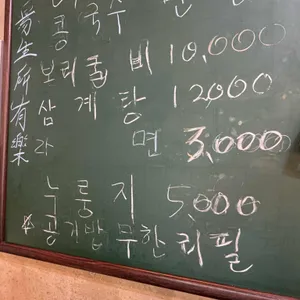 生所有樂
콩 국수
보리굴 비 10,000
삼 계 탕 12000
라 면 3,000
누 룽 지 5,000
공기밥 무한 리필